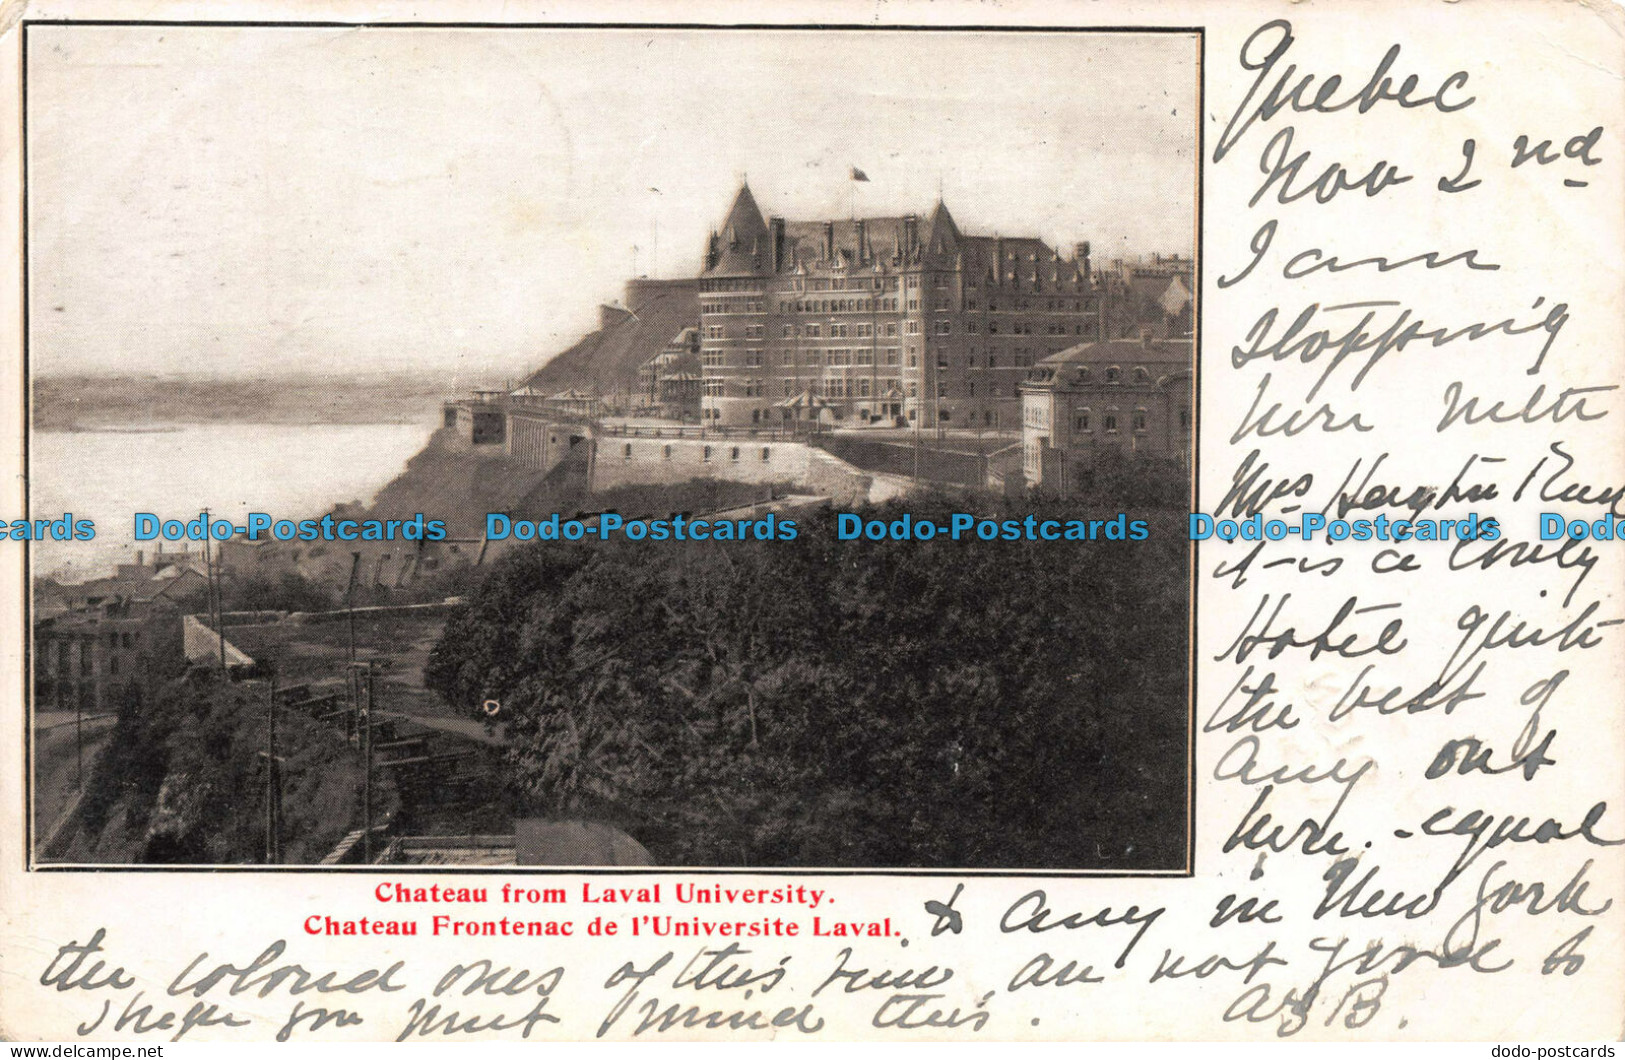 Quebec
Nov 2nd
I am
stopping
here with
Mrs
it-is a lovely
Hotel quite
the best of
any out
here. - equal
Chateau from Laval University.
Chateau Frontenac de l'Universite Laval.
to any in New York
the colored ones of this view are not good so
I hope you just mind this.
A B.
Dodo-Postcards Dodo-Postcards Dodo-Postcards Dodo-Postcards Dodo
dodo-postcards
© DELCAMPE.NET
dodo-postcards